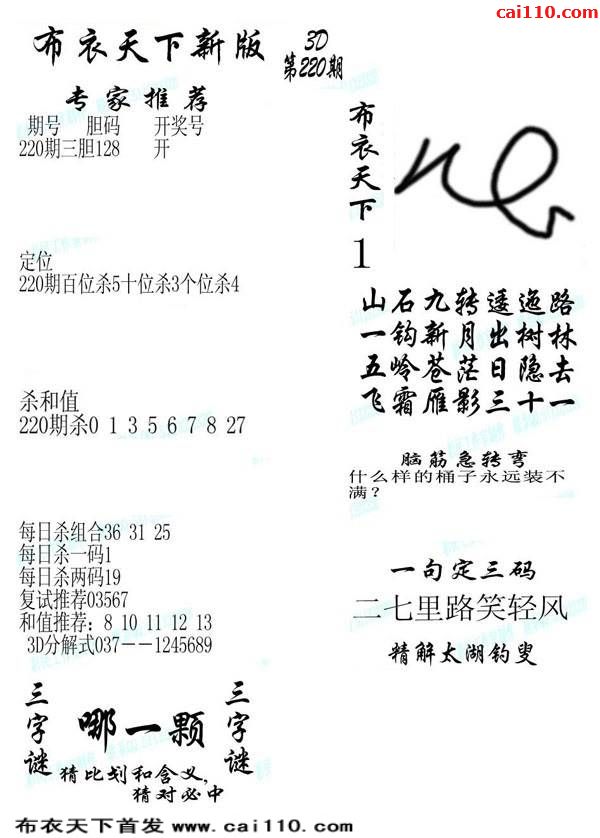 cai110.com
布衣天下新版
3D
第220期
专家推荐
期号 胆码 开奖号
220期三胆128 开
定位
220期百位杀5十位杀3个位杀4
杀和值
220期杀0 1 3 5 6 7 8 27
每日杀组合36 31 25
每日杀一码1
每日杀两码19
复试推荐03567
和值推荐：8 10 11 12 13
3D分解式037——1245689
三字谜
哪一颗
三字谜
猜比划和含义，
猜对必中
布衣天下
1
山石九转逶迤路
一钩新月出树林
五岭苍茫日隐去
飞霜雁影三十一
脑筋急转弯
什么样的桶子永远装不
满？
一句定三码
二七里路笑轻风
精解太湖钓叟
布衣天下首发 www.cai110.com